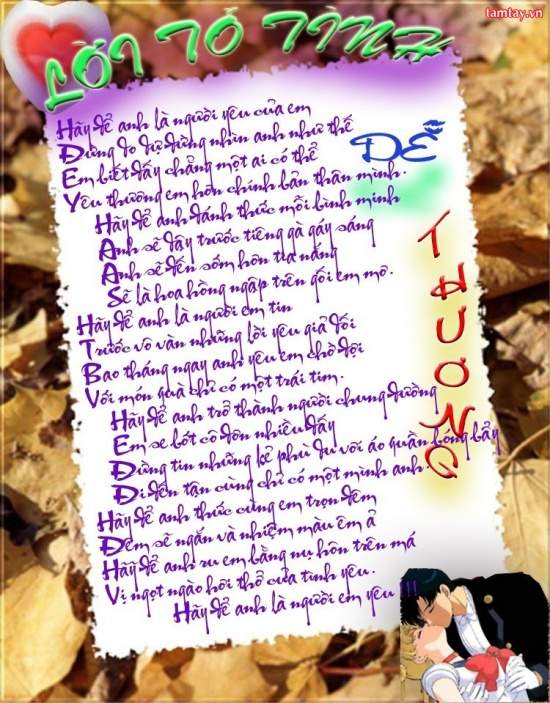 tamtay.vn
LỜI TỎ TÌNH
DỄ
THƯƠNG
Hãy để anh là người yêu của em
Đừng do dự đừng nhìn anh như thế
Em biết đấy chẳng một ai có thể
Yêu thương em hơn chính bản thân mình.
Hãy để anh đánh thức mỗi bình minh
Anh sẽ dậy trước tiếng gà gáy sáng
Anh sẽ đến sớm hơn tia nắng
Sẽ là hoa hồng ngập trên gối em mơ.
Hãy để anh là người em tin
Trước vô vàn những lời yêu giả dối
Bao tháng ngay anh yêu em chờ đợi
Với món quà chỉ có một trái tim.
Hãy để anh trở thành người chung đường
Em se bớt cô đơn nhiều đấy
Đừng tin những kẻ phù du với áo quần bóng bảy
Đi đến tận cùng chỉ có một mình anh.
Hãy để anh thức cùng em trọn đêm
Đêm sẽ ngắn và nhiệm màu êm ả
Hãy để anh ru em bằng nụ hôn trên má
Vị ngọt ngào hơi thở của tình yêu.
Hãy để anh là người em yêu !!!